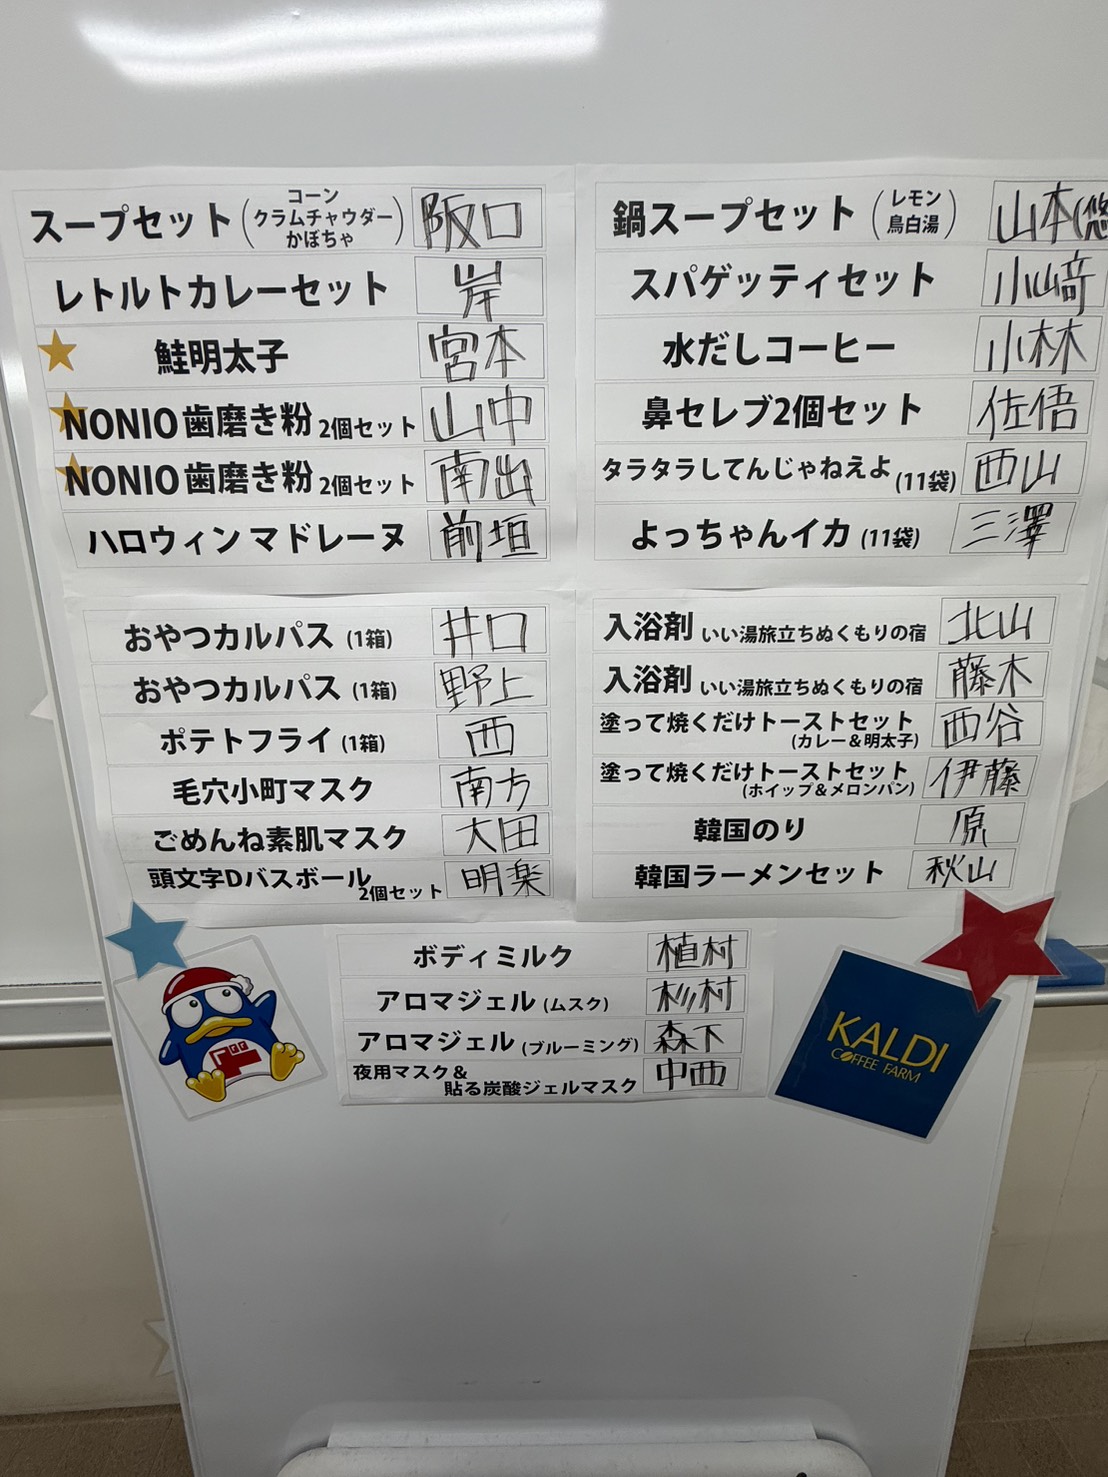 スープセット(コーン クラムチャウダー かぼちゃ) 阪口
レトルトカレーセット 岸
鮭明太子 宮本
NONIO歯磨き粉 2個セット 山中
NONIO歯磨き粉 2個セット 南出
ハロウィンマドレーヌ 前垣
鍋スープセット(レモン 鳥白湯) 山本(悠
スパゲッティセット 小﨑
水だしコーヒー 小林
鼻セレブ2個セット 佐悟
タラタラしてんじゃねえよ(11袋) 西山
よっちゃんイカ(11袋) 三澤
おやつカルパス(1箱) 井口
おやつカルパス(1箱) 野上
ポテトフライ(1箱) 西
毛穴小町マスク 南方
ごめんね素肌マスク 大田
頭文字Dバスボール 2個セット 明楽
入浴剤 いい湯旅立ちぬくもりの宿 北山
入浴剤 いい湯旅立ちぬくもりの宿 藤木
塗って焼くだけトーストセット (カレー&明太子) 西谷
塗って焼くだけトーストセット (ホイップ&メロンパン) 伊藤
韓国のり 原
韓国ラーメンセット 秋山
ボディミルク 植村
アロマジェル(ムスク) 杉村
アロマジェル(ブルーミング) 森下
夜用マスク&
貼る炭酸ジェルマスク 中西
KALDI
COFFEE FARM